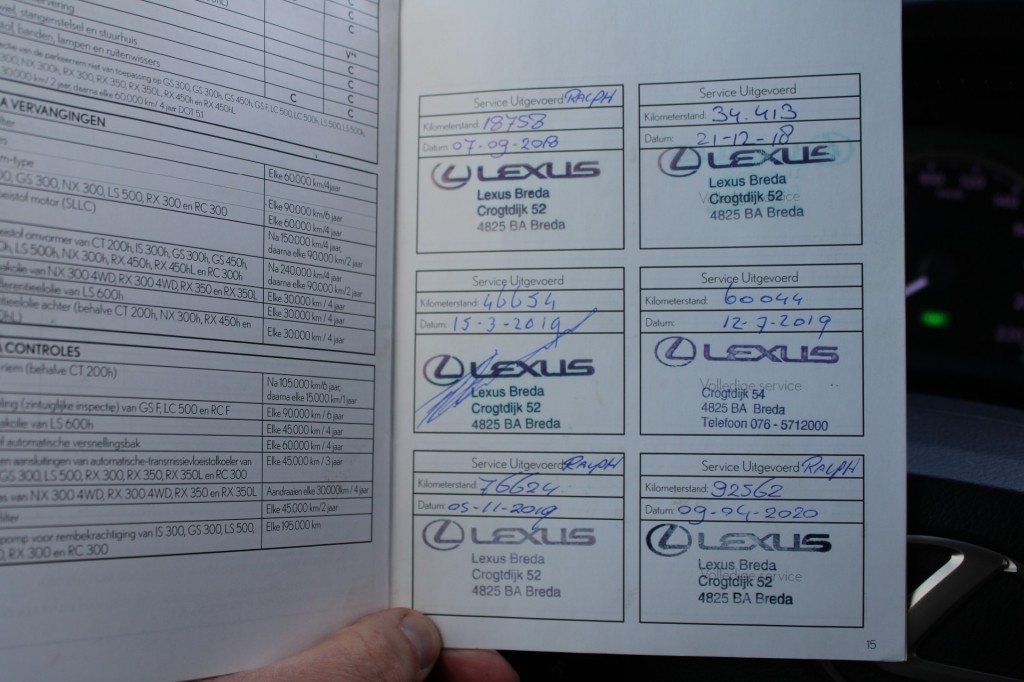 C
C
stangenstelsel en stuurhuis
banden, lampen en ruitenwissers
C
C
C
C
C
A VERVANGINGEN
Elke 60.000 km/4jaar
GS 300, NX 300, LS 500, RX 300 en RC 300
Elke 90.000 km/6 jaar
motor (SLLC)
Elke 60.000 km/4 jaar
Na 150.000 km/4 jaar,
daarna elke 90.000 km/2 jaar
omvormer van CT 200h, IS 300h, GS 300h, GS 450h,
LS 500h, NX 300h, RX 450h, RX 450hL en RC 300h
Na 240.000 km/4 jaar
daarna elke 90.000 km/2 jaar
van NX 300 4WD, RX 300 4WD, RX 350 en RX 350L
Elke 30.000 km / 4 jaar
van LS 600h
Elke 30.000 km / 4 jaar
achter (behalve CT 200h, NX 300h, RX 450h en
Elke 30.000 km / 4 jaar
A CONTROLES
(behalve CT 200h)
Na 105.000 km/6 jaar,
daarna elke 15.000 km/1 jaar
(zintuiglijke inspectie) van GS F, LC 500 en RC F
Elke 90.000 km / 6 jaar
van LS 600h
Elke 45.000 km / 4 jaar
automatische versnellingsbak
Elke 60.000 km / 4 jaar
en aansluitingen van automatische-transmissievloeistofkoeler van
GS 300, LS 500, RX 300, RX 350, RX 350L en RC 300
Elke 45.000 km / 3 jaar
van NX 300 4WD, RX 300 4WD, RX 350 en RX 350L
Aandraaien elke 30000km / 4 jaar
filter
Elke 45.000 km/2 jaar
pomp voor rembekrachtiging van IS 300, GS 300, LS 500,
RX 300 en RC 300
Elke 195.000 km
Service Uitgevoerd RALPH
Kilometerstand: 18758
Datum: 07-09-2018
LEXUS
Lexus Breda
Crogtdijk 52
4825 BA Breda
Service Uitgevoerd
Kilometerstand: 34.413
Datum: 21-12-18
LEXUS
Lexus Breda
Crogtdijk 52
4825 BA Breda
Service Uitgevoerd
Kilometerstand: 46654
Datum: 15-3-2019
LEXUS
Lexus Breda
Crogtdijk 52
4825 BA Breda
Service Uitgevoerd
Kilometerstand: 60044
Datum: 12-7-2019
LEXUS
Volledige service
Crogtdijk 54
4825 BA Breda
Telefoon 076 - 5712000
Service Uitgevoerd RALPH
Kilometerstand: 76624
Datum: 05-11-2019
LEXUS
Lexus Breda
Crogtdijk 52
4825 BA Breda
Service Uitgevoerd RALPH
Kilometerstand: 92562
Datum: 09-04-2020
LEXUS
Lexus Breda
Volledige service
Crogtdijk 52
4825 BA Breda
15